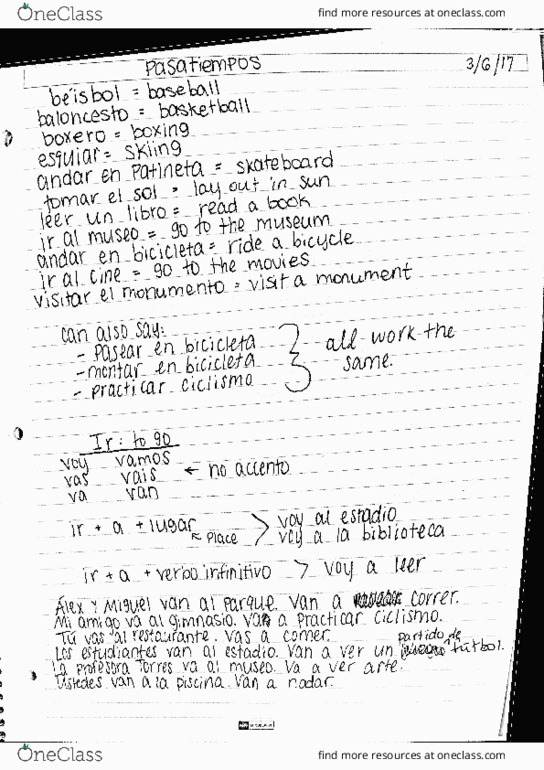 OneClass find more resources at oneclass.com
Pasatiempos 3/6/17
béisbol = baseball
baloncesto = basketball
boxero = boxing
esquiar = skiing
andar en patineta = skateboard
tomar el sol = lay out in sun
leer un libro = read a book
ir al museo = go to the museum
andar en bicicleta = ride a bicycle
ir al cine = go to the movies
visitar el monumento = visit a monument
can also say:
- Pasear en bicicleta
- montar en bicicleta
- practicar ciclismo
all work the
same.
Ir: to go
voy vamos
vas vais ← no accento
va van
ir + a + lugar > voy al estadio
↖ Place voy a la biblioteca
ir + a + verbo infinitivo > voy a leer
Álex y Miguel van al parque. Van a correr.
Mi amigo va al gimnasio. Va a practicar ciclismo.
Tú vas al restaurante. Vas a comer.
Los estudiantes van al estadio. Van a ver un partido de fútbol.
La profesora Torres va al museo. Va a ver arte.
Ustedes van a la piscina. Van a nadar.
OneClass find more resources at oneclass.com